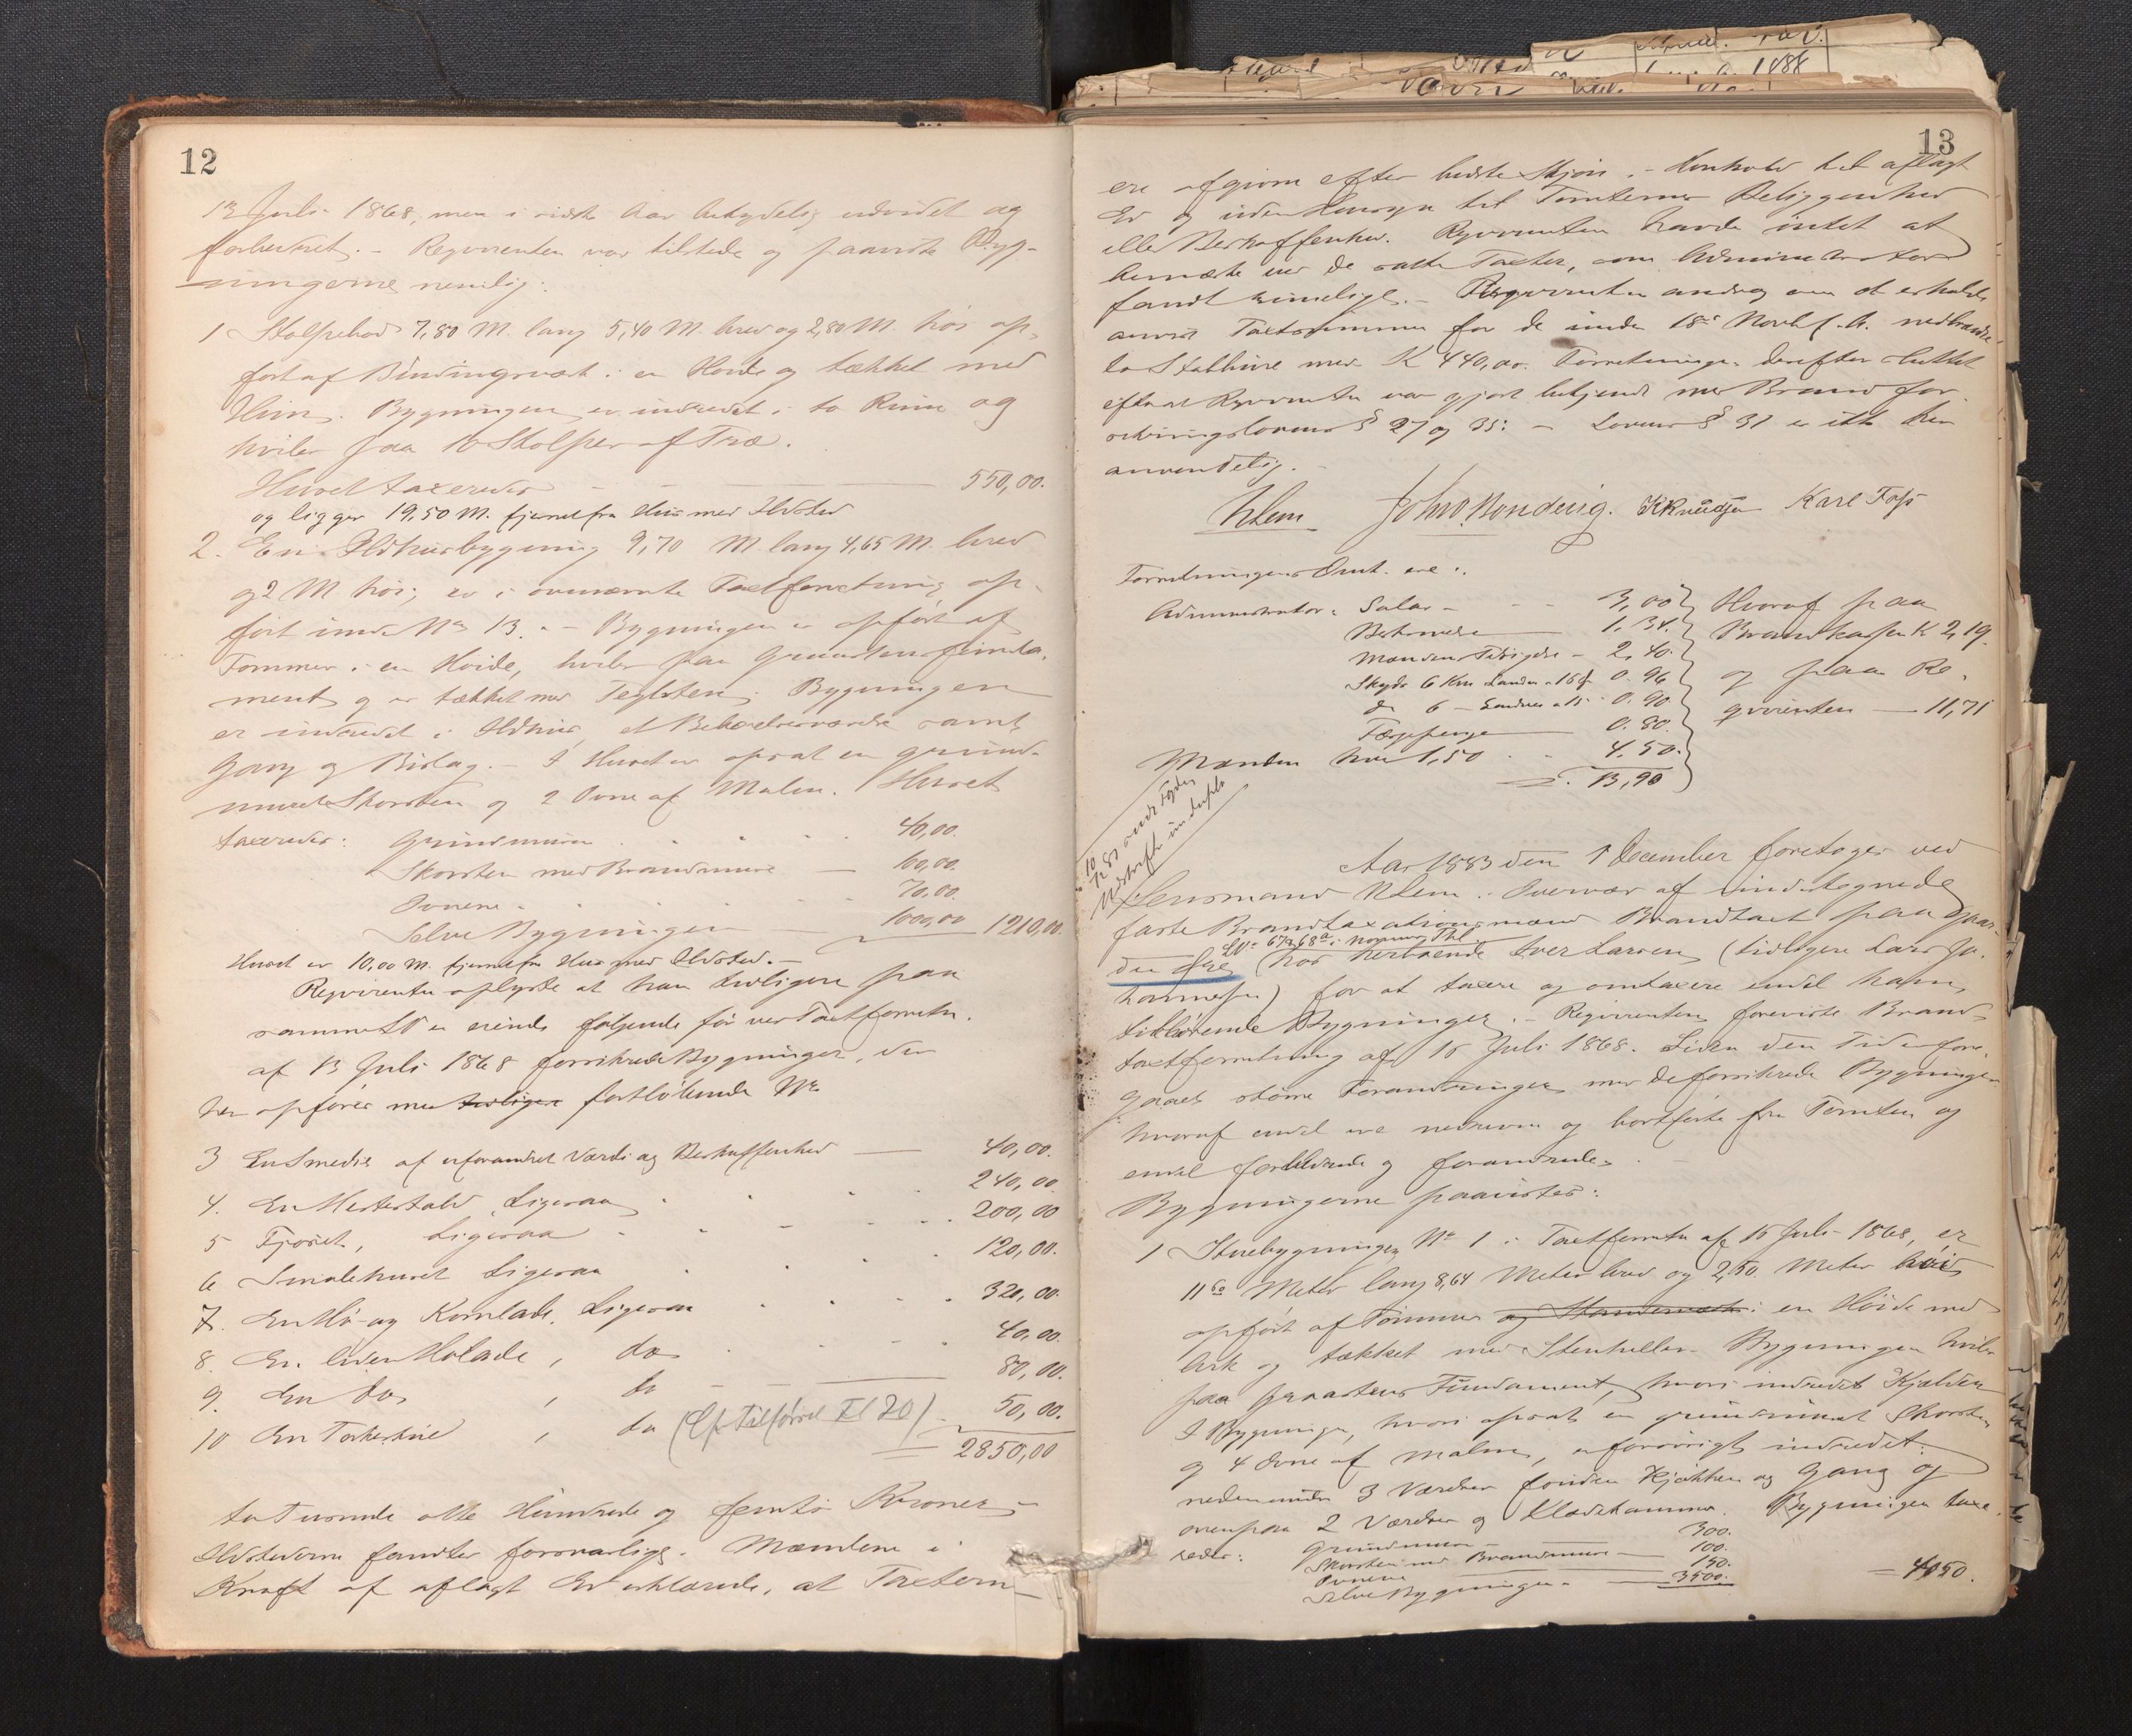 12
13 Juli 1868, men i sidste Aar betydelig udvidet og
forbedret. – Reqvirenten var tilstede og paaviste Byg-
ningerne nemlig:
1 Stolpebod 7,80 M. lang 5,40 M. bred og 2,80 M. høi op-
ført af Bindingsværk i en Høide og tækket med
Bygningen er indredet i to Rum og
hviler paa 10 Stolper af Træ.
Huset taxeredes – – 550,00.
og ligger 19,50 M. fjernet fra Hus med Ildsted
2. En Ildhusbygning 9,70 M. lang 4,65 M. bred
og 2 M høi; er i ovennævnte Taxtforretning op-
ført under No 13. – Bygningen er opført af
Tømmer i en Høide, hviler paa Graastensfunda-
ment og er tækket med Teglsten. Bygningen
er indredet i Ildhus, et Bekvæmværelse samt
Gang og Bislag. – I Huset er opsat en grund-
muret Skorsten og 2 Ovne af Malm. Huset
taxeredes: Grundmuren 40,00.
Skorsten med Brandmure — 100,00.
Ovnene 70,00.
Selve Bygningen 1000,00 1210,00.
Huset er 10,00 M. fjernet fra Hus med Ildsted. –
Reqvirenten oplyste at han tidligere paa
samme er eiende følgende før ved Taxtforretn.
af 13 Juli 1868 forsikrede Bygninger, der
her opføres med tidligere fortløbende No
3 En Smedie af uforandret Værdi og Beskaffenhed — 40,00.
4. En Hestestald, Ligesaa 240,00
5 Fjøset, Ligesaa 200,00
6 Smalehuset Ligesaa 120,00.
7. En Hø- og Kornlade, Ligesaa 320,00.
8. En liden Hølade, do 40,00.
9. En do, do 80,00.
10 En Tørkehus, do (Cfr Tilførsel Fol 20) 50,00.
2850,00
to Tusende otte Hundrede og femti Kroner –
Ildstederne fandtes forsvarlige. Mændene i
Kraft af aflagt Ed erklærede, at Taxterne
13
ere afgivne efter bedste Skjøn i Henhold til aflagt
Ed og uden Hensyn til Tomternes Beliggenhed
eller Beskaffenhed. Reqvirenten havde intet at
bemærke ved de satte Taxter, som Administrator
fandt rimelige. – Reqvirenten androg om at erholde
anvist Taxtsummen for de under 18de Novbr f. A. nedbrændte
to Stabbure med K 440,00. Forretningen derefter sluttet
efterat Reqvirenten var gjort bekjendt med Brandfor-
sikringslovens § 27 og 35: – Lovens § 31 er ikke her
anvendelig. –
Klem John Nondevig. K Knudsen Karl Foss
Forretningens Omk. ere:
Administrator: Salar – 3,00
Betænkte 1,34.
Mændenes Tilsigelse – 2,40.
Skyds 6 Km Landv. a 16 Ø 0.96
do 6 – Landvei a 15 0.90
Færgepenge 0.80
Mændene hver 1,50 4.50.
Σ. 13,90
Hvoraf paa
Brandkassen K 2,19
og paa Re-
qvirenten — 11,71
Aar 1883 den 1 December foretoges ved
Lensmand Klem i Overvær af undertegnede
faste Brandtaxationsmænd Brandtaxt paa Gaar-
den
hos herboende Iver Larsen (tidligere Lars Jo-
hannessen) for at taxere og omtaxere endel ham
tilhørende Bygninger. – Reqvirenten foreviste Brand-
taxtforretning af 15 Juli 1868. Siden den Tid er fore-
gaaet større Forandringer med de forsikrede Bygninger
hvoraf endel ere nedrevne og bortførte fra Tomten og
endel forbedrede og forandrede.
Bygningerne paavistes:
1 Stuebygningen No 1 i Taxtforretn af 15 Juli 1868, er
11,60 Meter lang 8,64 Meter bred og 2,50 Meter høi
opført af Tømmer og Standerværk i en Høide med
Ark og tækket med Stenheller. Bygningen hviler
paa Graastens Fundament, hvori indredet Kjælder
I Bygningen, hvori opsat en grundmuret Skorsten
og 4 Ovne af Malm, er forøvrigt indredet:
nedenunder 3 Værelser foruden Kjøkken og Gang og
ovenpaa 2 Værelser og Klædekammer. Bygningen taxe-
redes: Grundmuren – 300.
Skorsten med Brandmure – 100.
Ovnene 150.
Selve Bygningen – 3500.
– 4050.